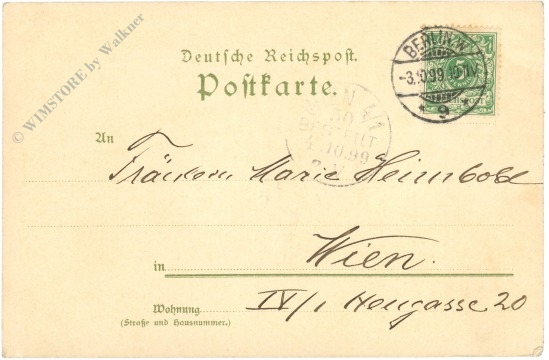 © WIMSTORE by Walkner
Deutsche Reichspost.
Postkarte.
BERLIN.W.
-3.10.99.10-11V.
* 9
WIEN 4/1
50
BESTELLT
4.10.99
An
Fräulein Marie Heimbold
in Wien.
Wohnung IV/1 Heugasse 20
(Straße und Hausnummer.)